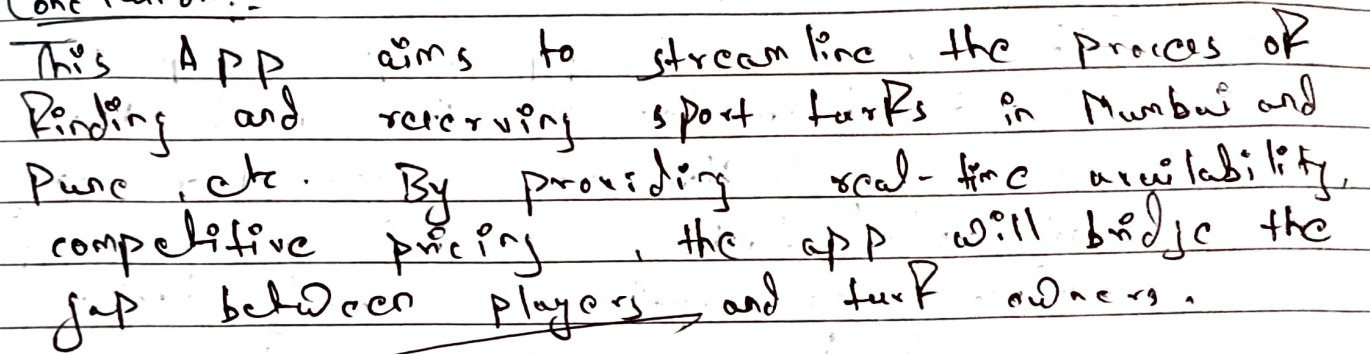 Conclusion :-
This App aims to streamline the procces of
finding and reserving sport turfs in Mumbai and
Pune, etc. By providing real-time availability,
competitive pricing, the app will bridge the
gap between players and turf owners.